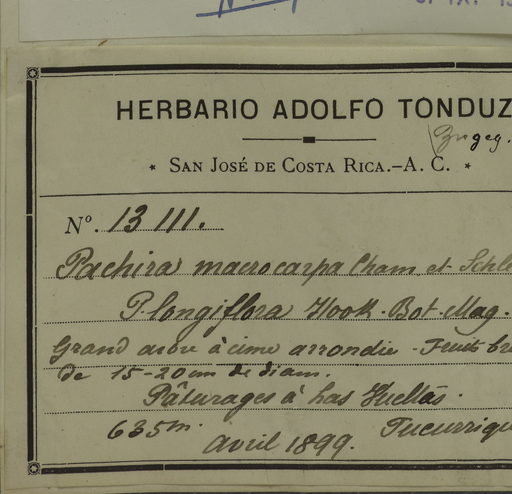 HERBARIO ADOLFO TONDUZ
* SAN JOSÉ DE COSTA RICA.–A. C. *
Nº. 13 111.
Pachira macrocarpa Cham. et Schle
P. longiflora Hook. Bot. Mag.
Grand arbre à cime arrondie - Fruits br
de 15-20 cm de diam.
Pâturages à Las Vueltas.
635m. Tucurriqu
Avril 1899.